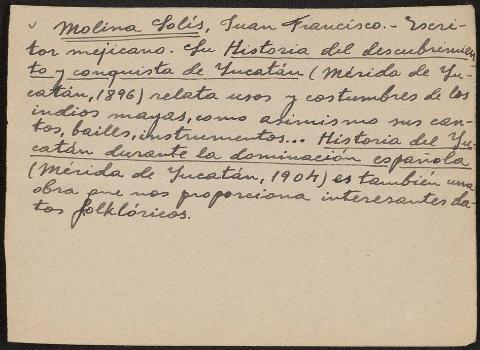 Molina Solís, Juan Francisco.- Escri-
tor mejicano. Su Historia del descubrimien
to y conquista de Yucatán (Mérida de Yu-
catán, 1896) relata usos y costumbres de los
indios mayas, como asimismo sus can-
tos, bailes, instrumentos... Historia del Yu-
catán durante la dominación española
(Mérida de Yucatán, 1904) es también una
obra que nos proporciona interesantes da-
tos folklóricos.